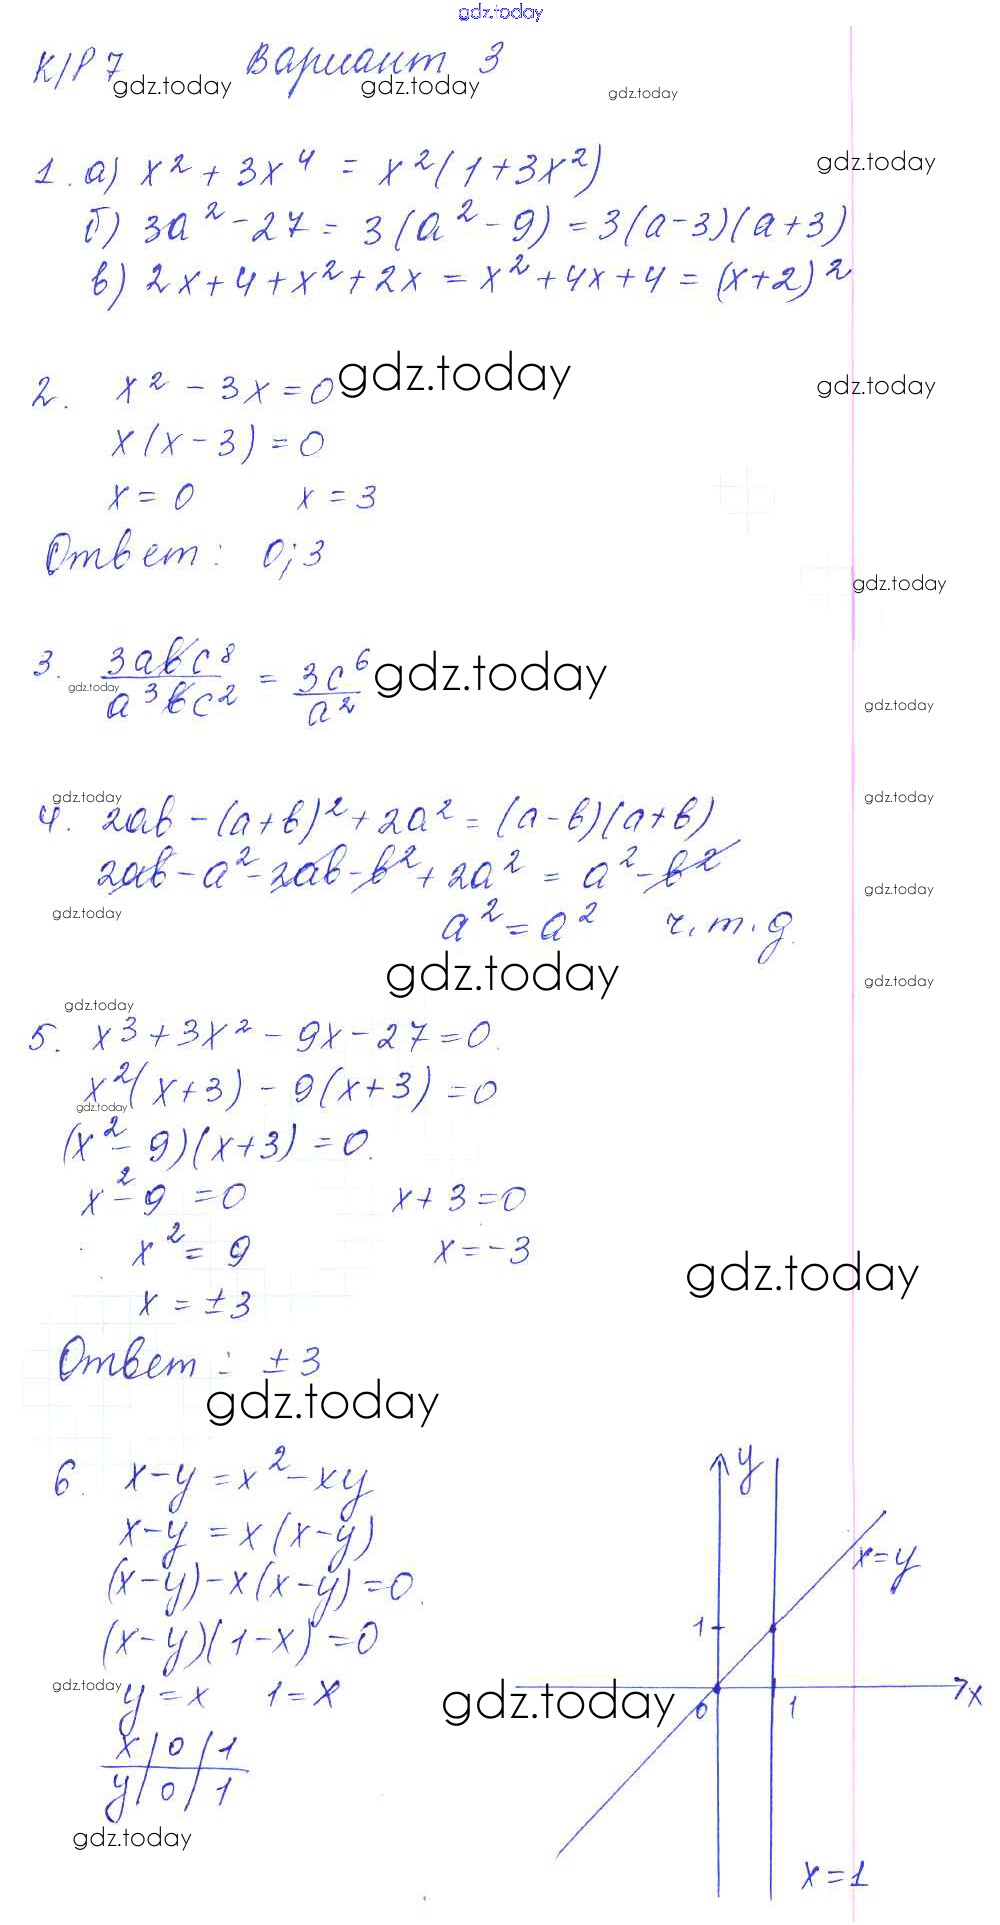 gdz.today
К/Р 7 Вариант 3
gdz.today gdz.today gdz.today
1. а) x² + 3x⁴ = x²(1+3x²) gdz.today
б) 3a² - 27 = 3(a² - 9) = 3(a-3)(a+3)
в) 2x+4+x²+2x = x²+4x+4 = (x+2)²
2. x² - 3x = 0 gdz.today gdz.today
x(x-3) = 0
x = 0 x = 3
Ответ: 0; 3
gdz.today
3. 3abc⁸ / a³bc² = 3c⁶ / a² gdz.today
gdz.today gdz.today
gdz.today gdz.today
4. 2ab - (a+b)² + 2a² = (a-b)(a+b)
2ab - a² - 2ab - b² + 2a² = a² - b² gdz.today
gdz.today a² = a² ч.т.д.
gdz.today gdz.today
gdz.today
5. x³ + 3x² - 9x - 27 = 0.
x²(x+3) - 9(x+3) = 0
gdz.today
(x² - 9)(x+3) = 0.
x² - 9 = 0 x + 3 = 0
x² = 9 x = -3
gdz.today
x = ±3
Ответ: ±3
gdz.today
6. x-y = x² - xy y
x-y = x(x-y) x=y
(x-y) - x(x-y) = 0.
(x-y)(1-x) = 0 1
gdz.today y = x 1 = x gdz.today 0 1 x
x | 0 | 1
y | 0 | 1
gdz.today
x = 1